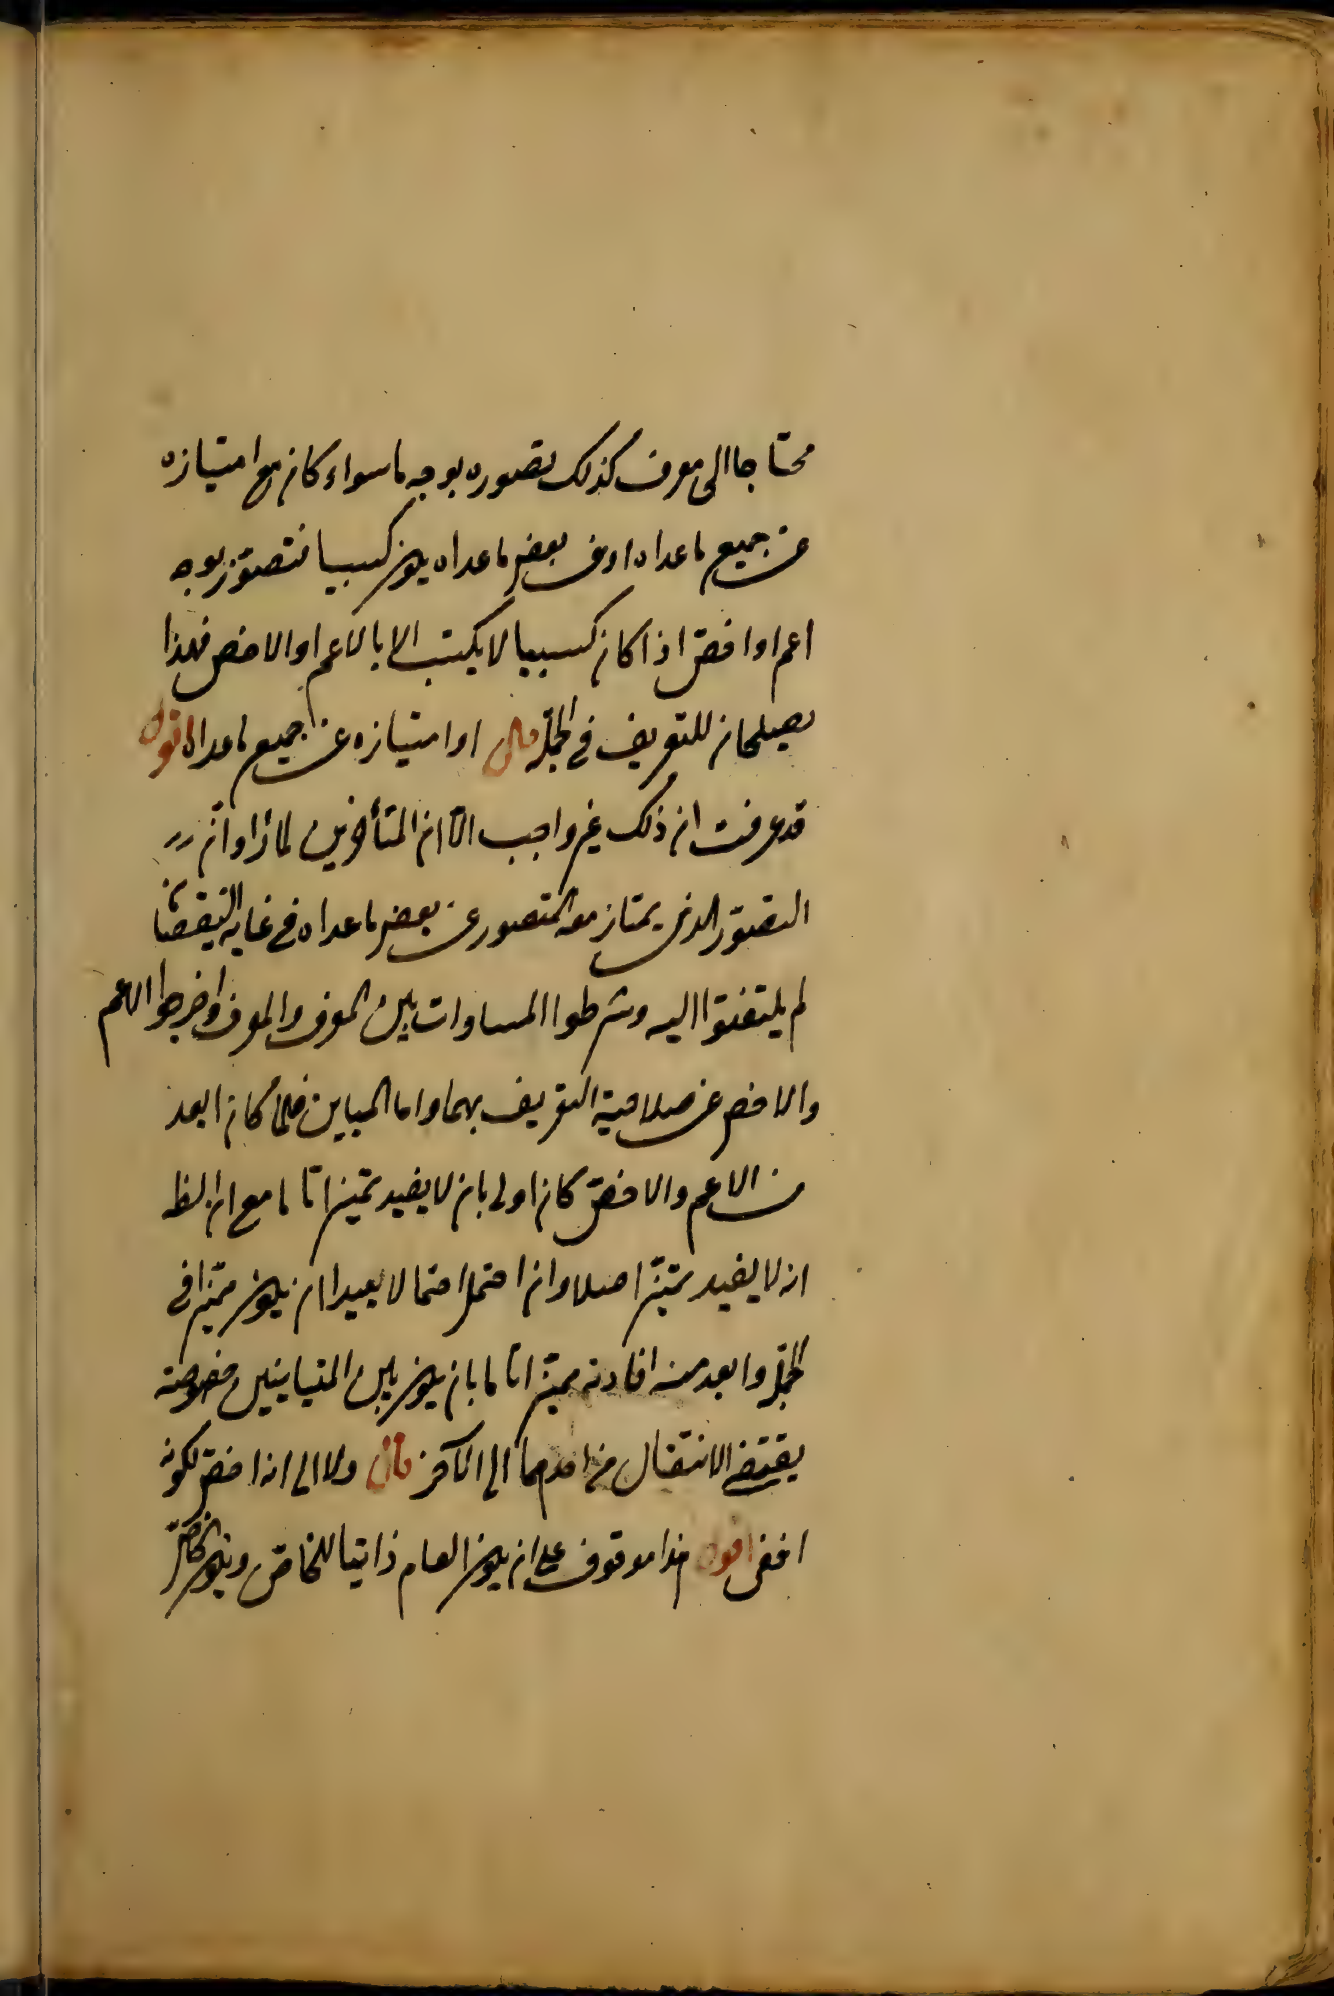 محتاجا الى معرف كذلك تصوره بوجه ما سواء كان مع امتيازه
عن جميع ما عداه او عن بعض ما عداه يكون كسبيا فتصور بوجه
اعم او اخص اذا كان كسبيا لا يكتسب الا بالاعم او الاخص فهذا
يصلحان للتعريف في الجملة قال او امتيازه عن جميع ما عداه اقول
قد عرفت ان ذلك غير واجب الا ان المتأخرين لما رأوا ان
التصور الذي يمتاز معه المتصور عن بعض ما عداه في غاية النقصان
لم يلتفتوا اليه وشرطوا المساوات بين المعرف والمعرف واخرجوا الاعم
والاخص عن صلاحية التعريف بهما واما المباين فلما كان ابعد
من الاعم والاخص كان اولى بان لا يفيد تميزا تاما مع ان الظ
انه لا يفيد تميزا اصلا وان احتمل احتمالا بعيدا ان يكون مميزا في
الجملة وابعد منه افادته تميزا تاما بان يكون بين المتباينين خصوصية
يقتضي الانتقال من احدهما الى الآخر قال ولا الى انه اخص لكونه
اخفى اقول هذا موقوف على ان يكون العام ذاتيا للخاص ويكون الخاص